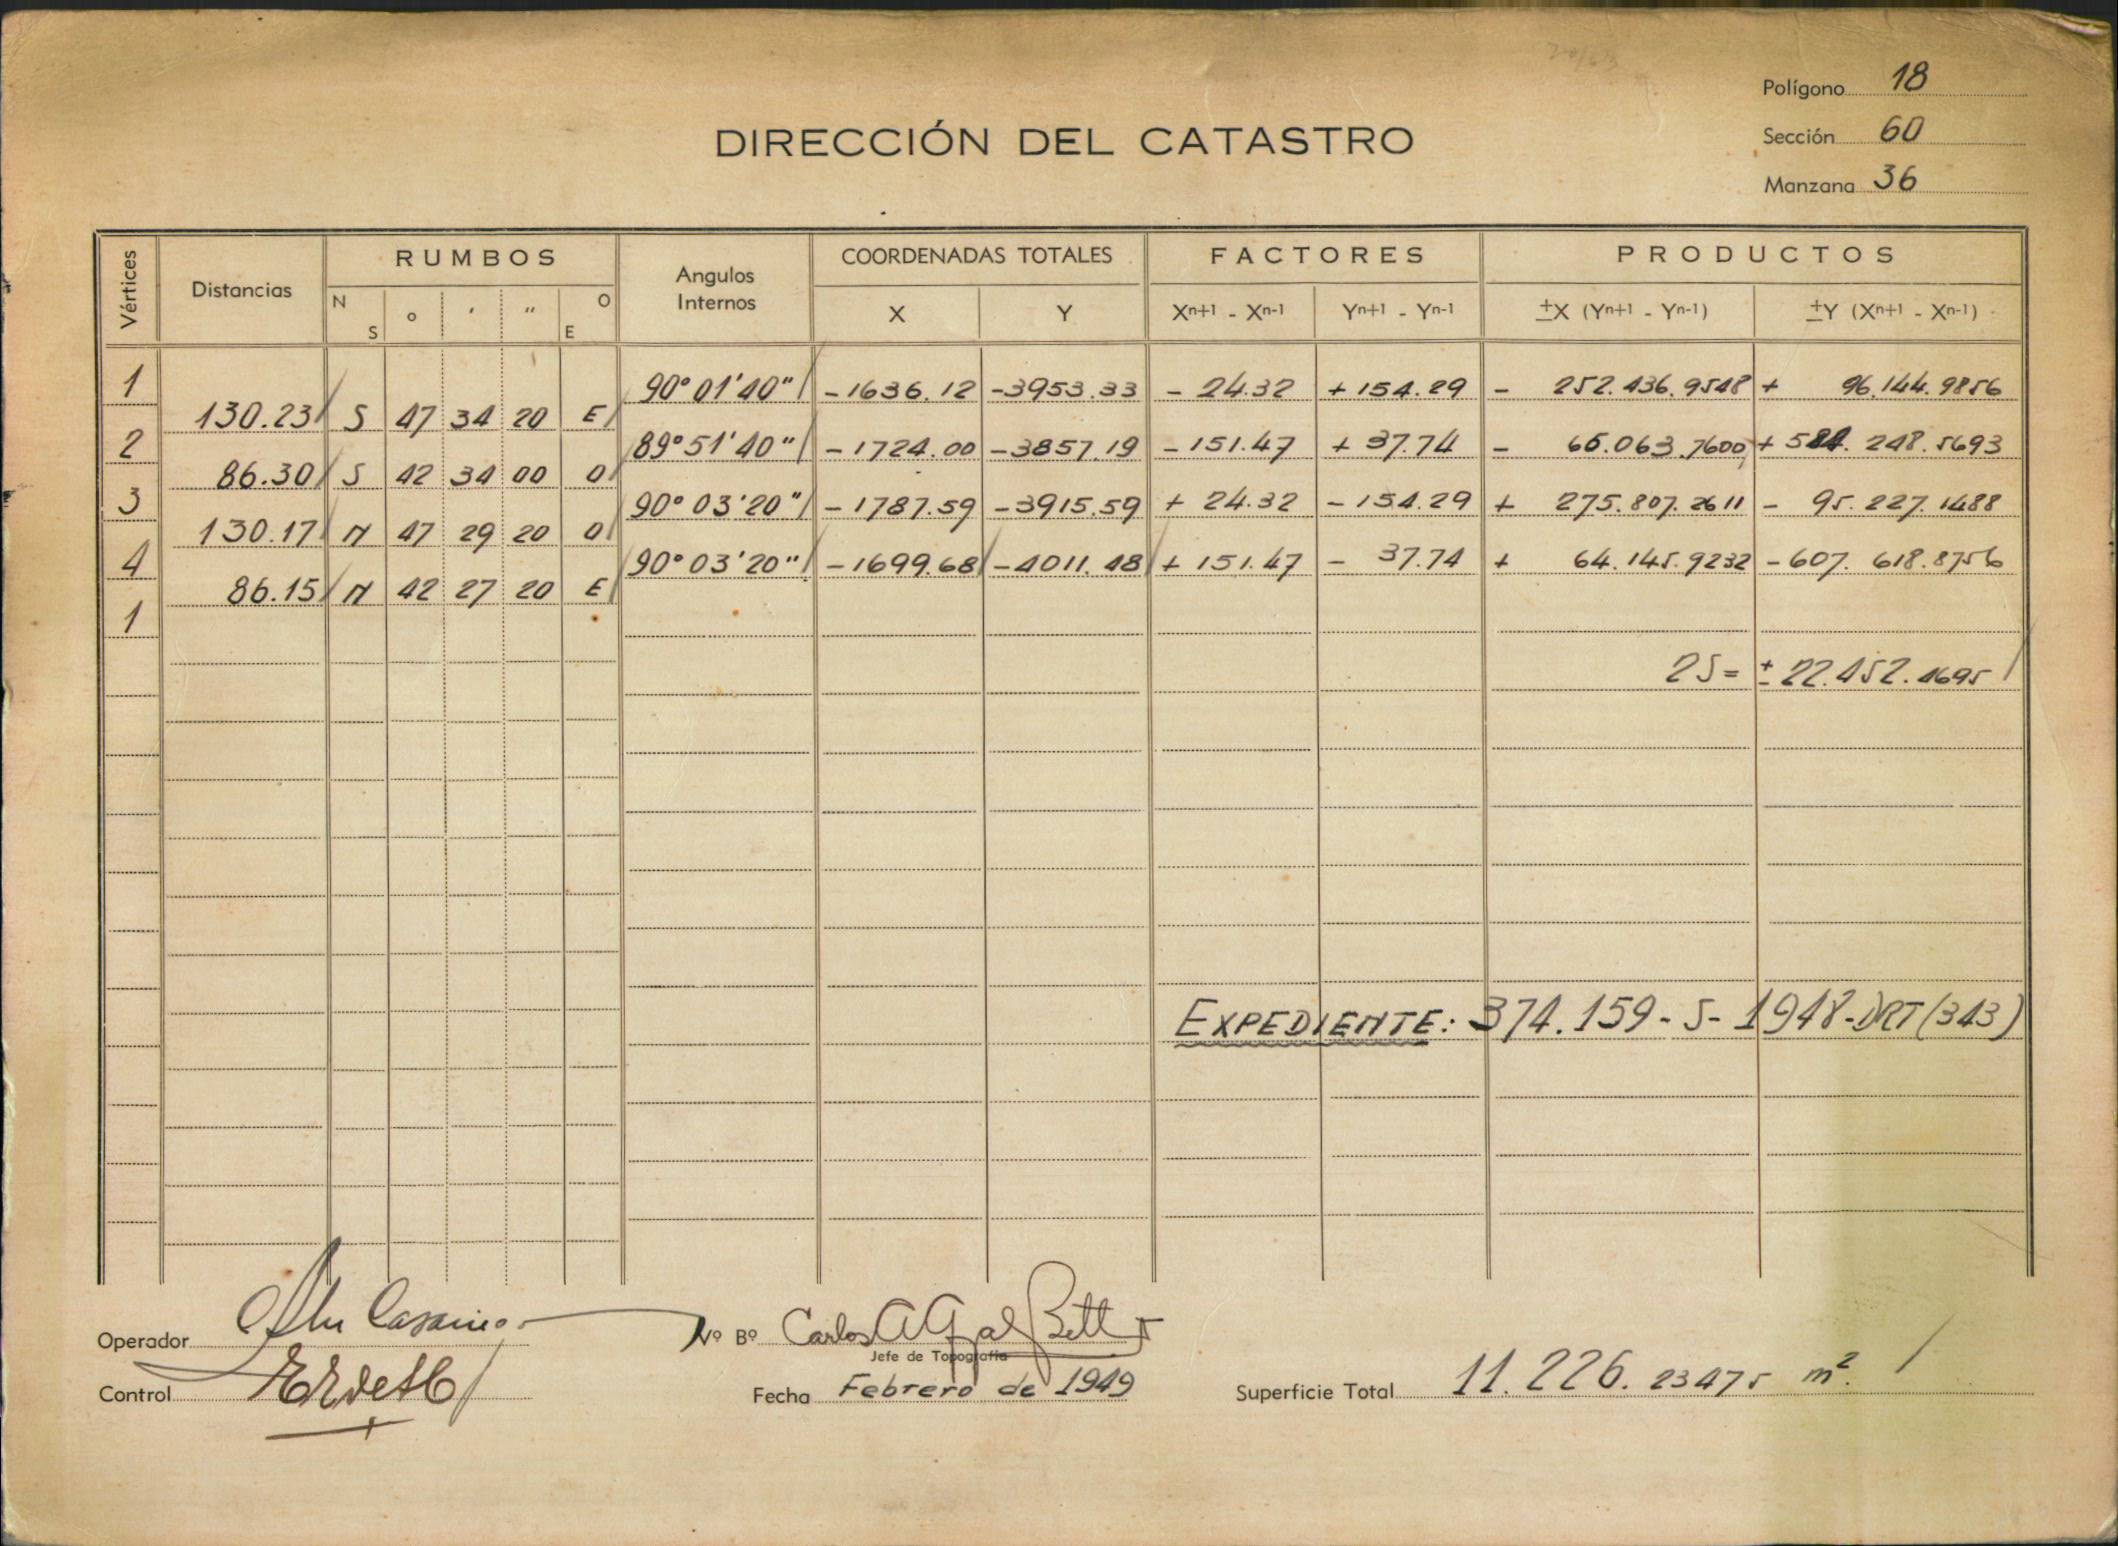 Polígono 18
DIRECCIÓN DEL CATASTRO
Sección 60
Manzana 36
Vértices Distancias RUMBOS Angulos Internos COORDENADAS TOTALES FACTORES PRODUCTOS
N S ° ' " O E X Y Xn+1 - Xn-1 Yn+1 - Yn-1 ±X (Yn+1 - Yn-1) ±Y (Xn+1 - Xn-1)
1 90° 01' 40" -1636.12 -3953.33 - 24.32 + 154.29 - 252.436.9548 + 96.144.9856
130.23 S 47 34 20 E
2 89° 51' 40" -1724.00 -3857.19 - 151.47 + 37.74 - 65.063.7600 + 584.248.5693
86.30 S 42 34 00 O
3 90° 03' 20" -1787.59 -3915.59 + 24.32 - 154.29 + 275.807.2611 - 95.227.1488
130.17 N 47 29 20 O
4 90° 03' 20" -1699.68 -4011.48 + 151.47 - 37.74 + 64.145.9232 - 607.618.8756
86.15 N 42 27 20 E
1
2S = ± 22.452.4695
EXPEDIENTE: 374.159 - S - 1948 - DRT (343)
Operador
Vº Bº Carlos
Jefe de Topografía
Control
Fecha Febrero de 1949
Superficie Total 11.226.23475 m².